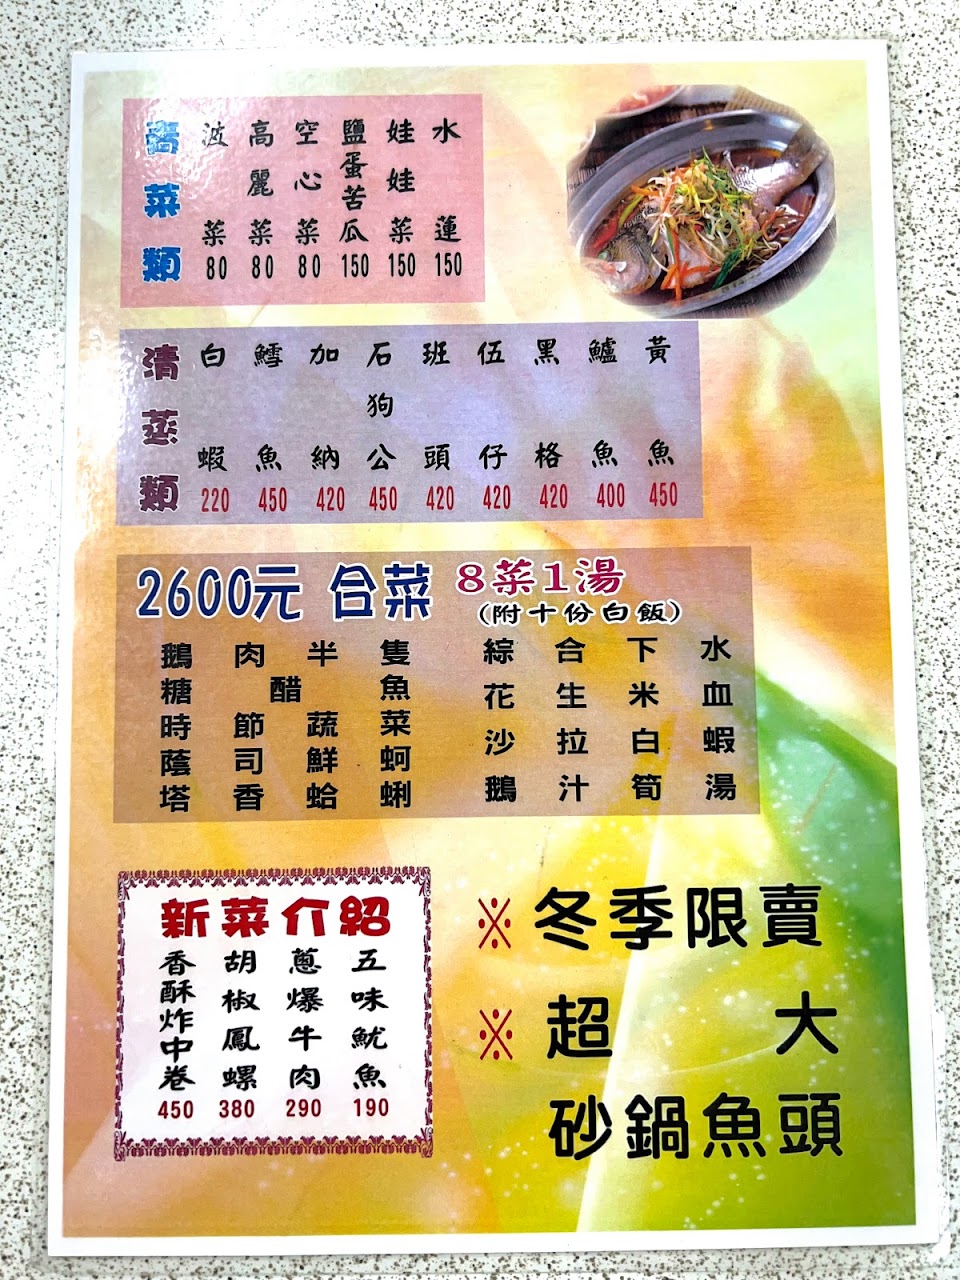 青菜類
波菜 80
高麗菜 80
空心菜 80
鹽蛋苦瓜 150
娃娃菜 150
水蓮 150
清蒸類
白蝦 220
鱈魚 450
加納 420
石狗公 450
班頭 420
伍仔 420
黑格 420
鱸魚 400
黃魚 450
2600元 合菜 8菜1湯
(附十份白飯)
鵝肉半隻
糖醋魚
時節蔬菜
蔭司鮮蚵
塔香蛤蜊
綜合下水
花生米血
沙拉白蝦
鵝汁筍湯
新菜介紹
香酥炸中卷 450
胡椒鳳螺 380
蔥爆牛肉 290
五味魷魚 190
※冬季限賣
※超大
砂鍋魚頭